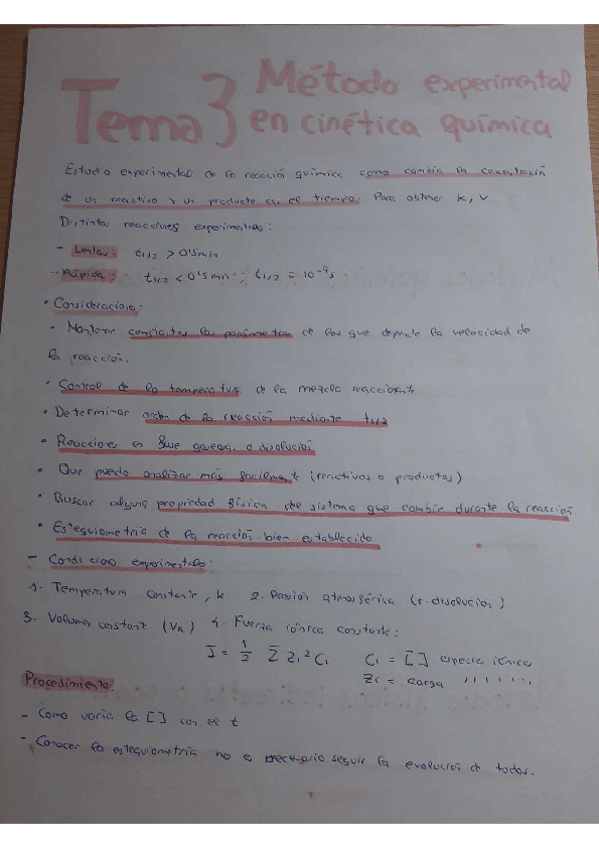 Tema 3 Método experimental
en cinética química
Estudio experimental de la reacción química como cambia la concentración
de un reactivo y un producto con el tiempo. Para obtener k, v
Distintas reacciones experimentales:
- Lentas: t1/2 > 0'5 min
- Rápida: t1/2 < 0'5 min ; t1/2 = 10⁻⁹s
• Consideraciones:
• Mantener constantes los parámetros de los que depende la velocidad de
la reacción.
• Control de la temperatura de la mezcla reaccionante
• Determinar orden de la reacción mediante t1/2
• Reacciones en fase gaseosa o disolución
• Que puedo analizar más facilmente (reactivos o productos)
• Buscar alguna propiedad física del sistema que cambie durante la reacción.
• Estequiometría de la reacción bien establecida
- Condiciones experimentales:
1. Temperatura constante, k 2. Presión atmosférica (r. disolución)
3. Volumen constant (VR) 4. Fuerza iónica constante:
I = 1/2 Σ Zi² Ci Ci = [ ] especie iónica
Zi = carga ' ' ' ' ' ' '
Procedimiento
- Como varia la [ ] con el t
- Conocer la estequiometría no es necesario seguir la evolución de todos.